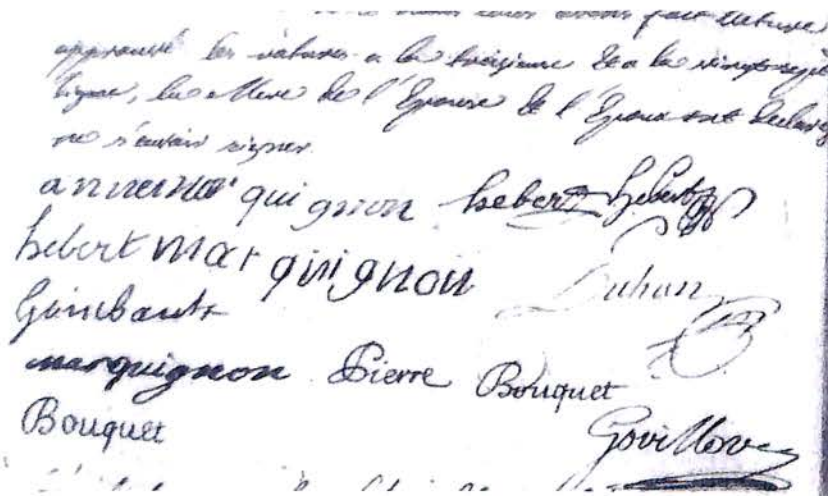 fait lecture
approuvé les ratures a la troisieme & a la vingt sept
ligne, la Mere de l'Epouse & l'Epoux ont declarez
ne sçavoir signer
anne mar quignon hebert hebert
hebert mar quignon Duhan
Gaimbault
marquignon Pierre Bouquet
Bouquet